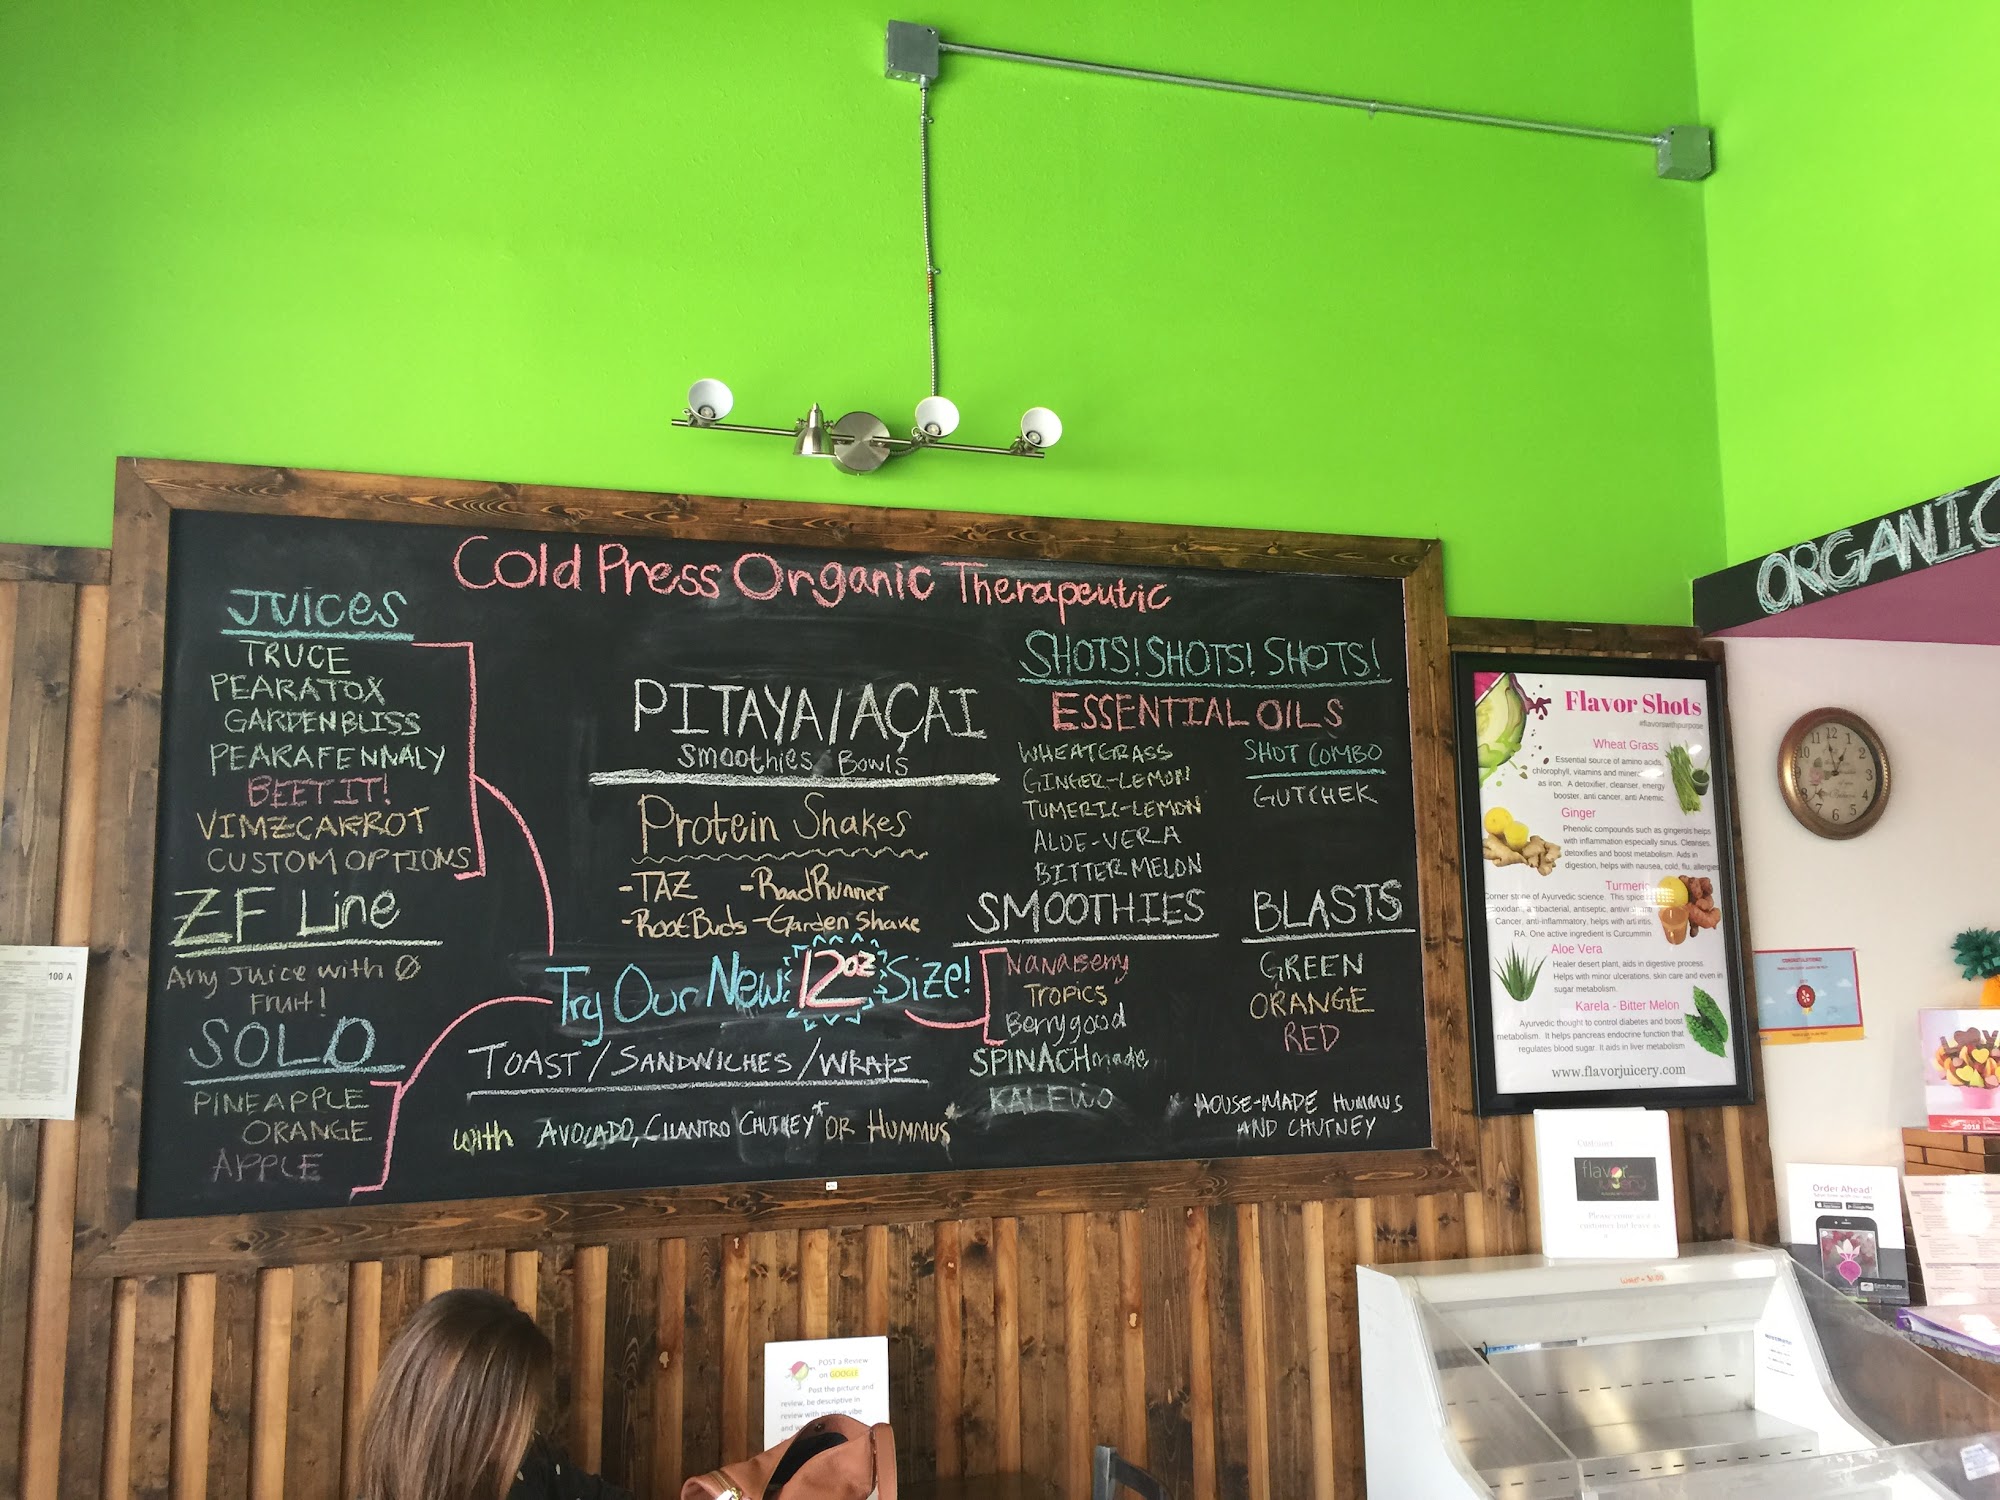 Cold Press Organic Therapeutic
JUICES
TRUCE
PEARATOX
GARDENBLISS
PEARAFENNALY
BEET IT!
VIMZCARROT
CUSTOM OPTIONS
ZF Line
Any Juice with Ø
Fruit!
SOLO
PINEAPPLE
ORANGE
APPLE
PITAYA/AÇAI
Smoothies Bowls
Protein Shakes
-TAZ -RoadRunner
-RootBuds -Garden Shake
Try Our New 12oz Size!
TOAST/SANDWICHES/WRAPS
with AVOCADO, CILANTRO CHUTNEY* OR HUMMUS*
SHOTS! SHOTS! SHOTS!
ESSENTIAL OILS
WHEATGRASS
GINGER-LEMON
TUMERIC-LEMON
ALOE-VERA
BITTER MELON
SHOT COMBO
GUTCHEK
SMOOTHIES
NANABERRY
TROPICS
Berrygood
SPINACHmade
KALEWO
BLASTS
GREEN
ORANGE
RED
* HOUSE-MADE HUMMUS
AND CHUTNEY
ORGANIC
Flavor Shots
#flavorswithpurpose
Wheat Grass
Essential source of amino acids,
chlorophyll, vitamins and
as iron. A detoxifier, cleanser, energy
booster, anti cancer, anti Anemic.
Ginger
Phenolic compounds such as gingerols helps
with inflammation especially sinus. Cleanses,
detoxifies and boost metabolism. Aids in
digestion, helps with nausea, cold, flu, allergies
Turmeric
Corner stone of Ayurvedic science. This
antiseptic,
Cancer, anti-inflammatory, helps with
RA. One active ingredient is Curcummin.
Aloe Vera
Healer desert plant, aids in digestive process.
Helps with minor ulcerations, skin care and even in
sugar metabolism.
Karela - Bitter Melon
Ayurvedic thought to control diabetes and boost
metabolism. It helps pancreas endocrine function that
regulates blood sugar. It aids in liver metabolism
www.flavorjuicery.com
100 A
flavor
juicery
Please come as a
customer but leave as
Order Ahead!
2018
POST a Review
on GOOGLE
Post the picture and
review, be descriptive in
review with positive vibe